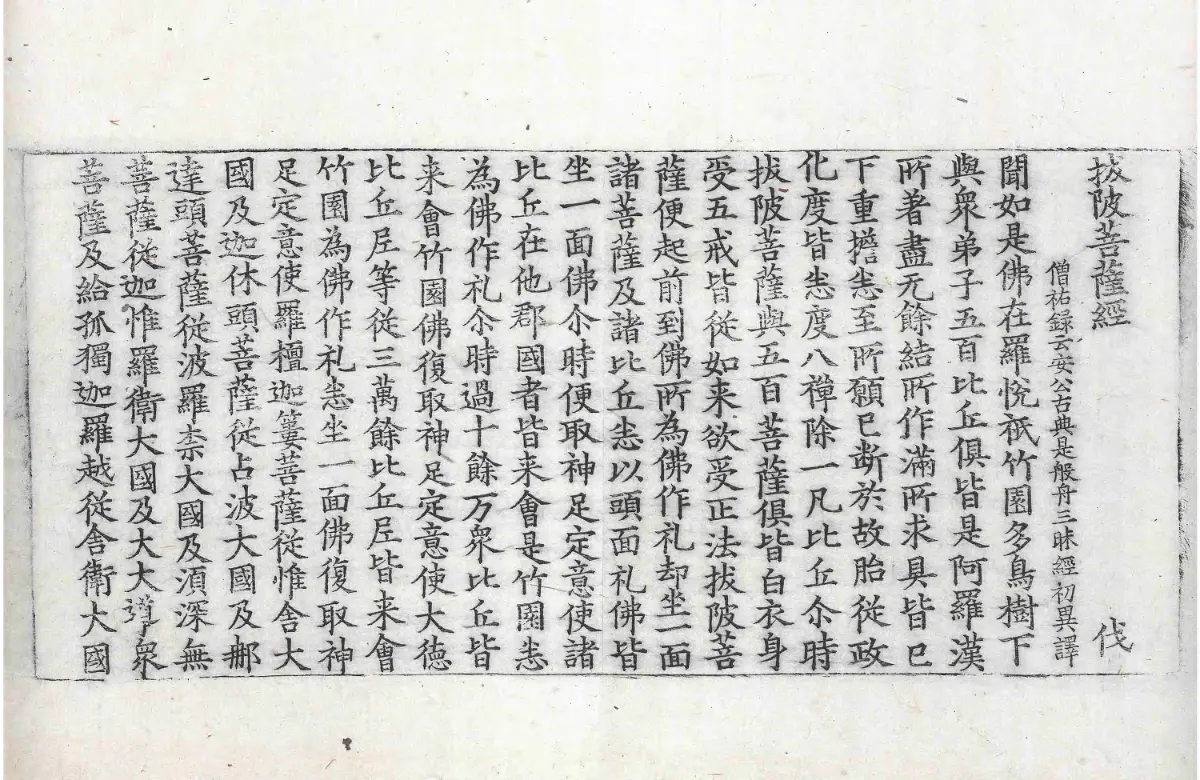 拔陂菩薩經 伐
僧祐録云安公古典是般舟三昧經初異譯
聞如是佛在羅悅祇竹園多鳥樹下
與衆弟子五百比丘俱皆是阿羅漢
所著盡无餘結所作滿所求具皆已
下重擔悉至所願已断於故胎従政
化度皆悉度八禪除一凡比丘尒時
拔陂菩薩與五百菩薩俱皆白衣身
受五戒皆従如来欲受正法拔陂菩
薩便起前到佛所為佛作礼却坐一面
諸菩薩及諸比丘悉以頭面礼佛皆
坐一面佛尒時便取神足定意使諸
比丘在他郡國者皆来會是竹園悉
為佛作礼尒時過十餘万衆比丘皆
来會竹園佛復取神足定意使大德
比丘尼等従三萬餘比丘尼皆来會
竹園為佛作礼悉坐一面佛復取神
足定意使羅檀迦簍菩薩従惟舍大
國及迦休頭菩薩従占波大國及郍
達頭菩薩従波羅柰大國及湏深無
菩薩従迦惟羅衛大國及大大導衆
菩薩及給孤獨迦羅越従舍衛大國